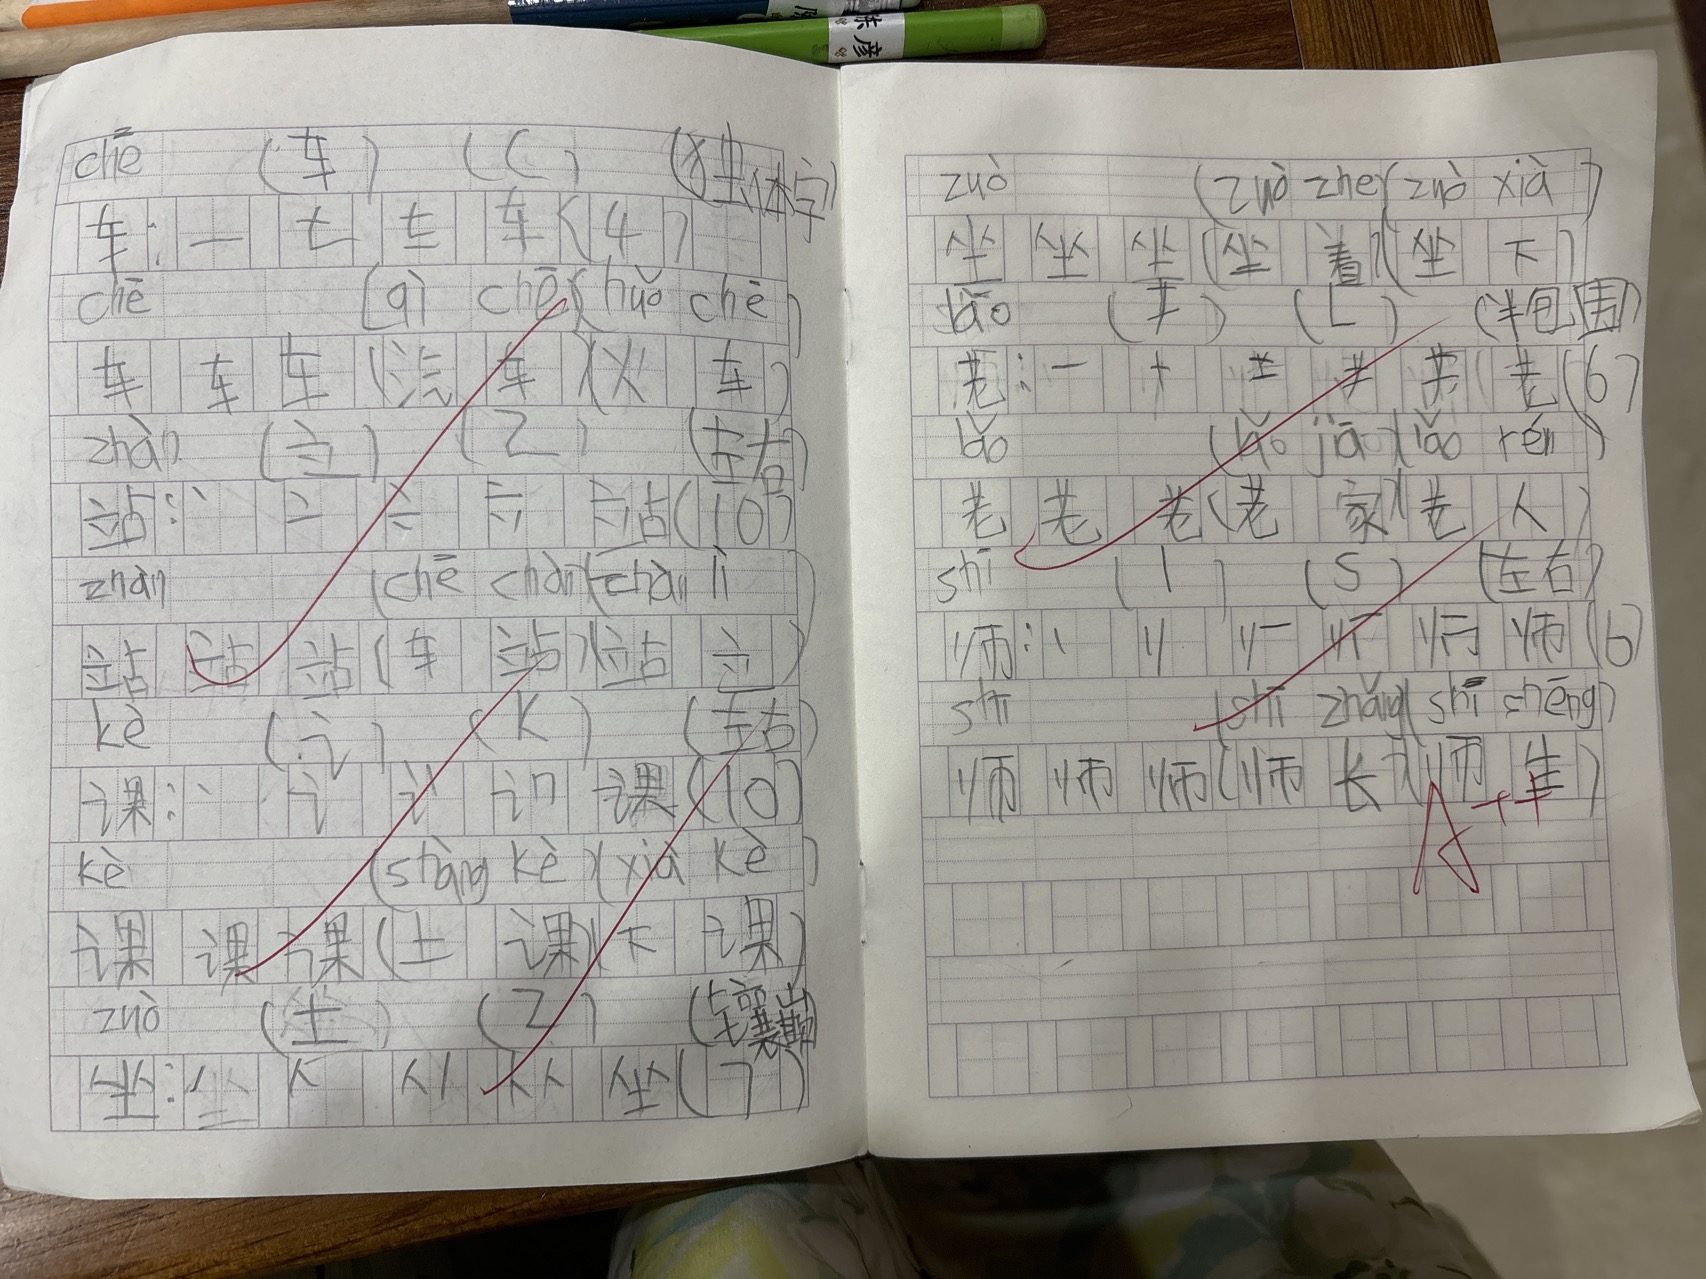 chē (车) (C) (独体字)
车: 一 七 车 车 (4)
chē (qì chē)(huǒ chē)
车 车 车 (汽 车)(火 车)
zhàn (立) (Z) (左右)
站: 丶 二 立 站 (10)
zhàn (chē chàn)(chàn lì)
站 站 站 (车 站)(站 立)
kè (讠) (K) (左右)
课: 丶 讠 课 (10)
kè (shàng kè)(xià kè)
课 课 课 (上 课)(下 课)
zuò (土) (Z)
坐: 人 坐 (7)
zuò (zuò zhe)(zuò xià)
坐 坐 坐 (坐 着)(坐 下)
lǎo (耂) (L) (半包围)
老: 一 十 土 耂 老 (6)
lǎo (lǎo jiā)(lǎo rén)
老 老 老 (老 家)(老 人)
shī (丨) (S) (左右)
师: 丨 师 (6)
shī (shī zhǎng)(shī shēng)
师 师 师 (师 长)(师 生)
A++